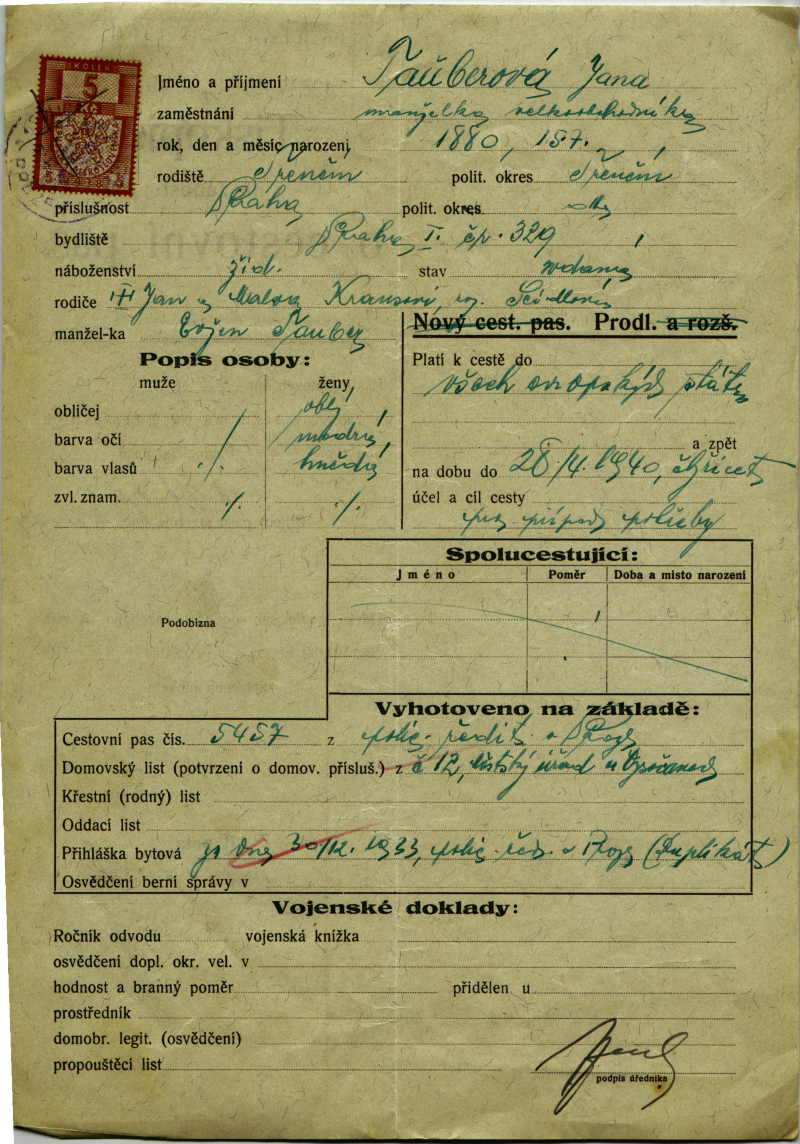 KOLEK
5
Jméno a příjmení Tauberová Jana
zaměstnání manželka velkoobchodníka
rok, den a měsíc narození 1880, 15.7.
rodiště Trenčín polit. okres Trenčín
příslušnost Praha polit. okres
bydliště Praha I. čp. 329
náboženství žid. stav vdaná
rodiče Jan a Krausovi, roz.
manžel-ka Evžen Tauber
Nový cest. pas. Prodl. a rozš.
Popis osoby:
muže ženy
obličej oblý
barva očí modrá
barva vlasů ./. hnědá
zvl. znam. ./. ./.
Platí k cestě do
všech evropských států
a zpět
na dobu do 28./4. 1940, čtyřicet
účel a cíl cesty
pro případ potřeby
Spolucestující:
Jméno Poměr Doba a misto narození
Podobizna
Vyhotoveno na základě:
Cestovní pas čís. 5457 z polic. ředit. v Praze
Domovský list (potvrzení o domov. přísluš.) z č 12, úřad
Křestní (rodný) list
Oddací list
Přihláška bytová ze dne 30/12. 1933, polic. řed. v Praze (Duplikát)
Osvědčení berní správy v
Vojenské doklady:
Ročník odvodu vojenská knížka
osvědčení dopl. okr. vel. v
hodnost a branný poměr přidělen u
prostředník
domobr. legit. (osvědčení)
propouštěcí list
podpis úředníka